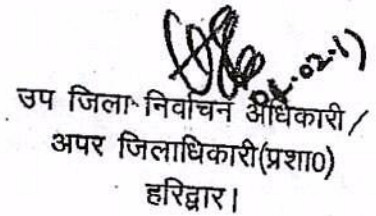 उप जिला निर्वाचन अधिकारी /
अपर जिलाधिकारी(प्रशा0)
हरिद्वार।